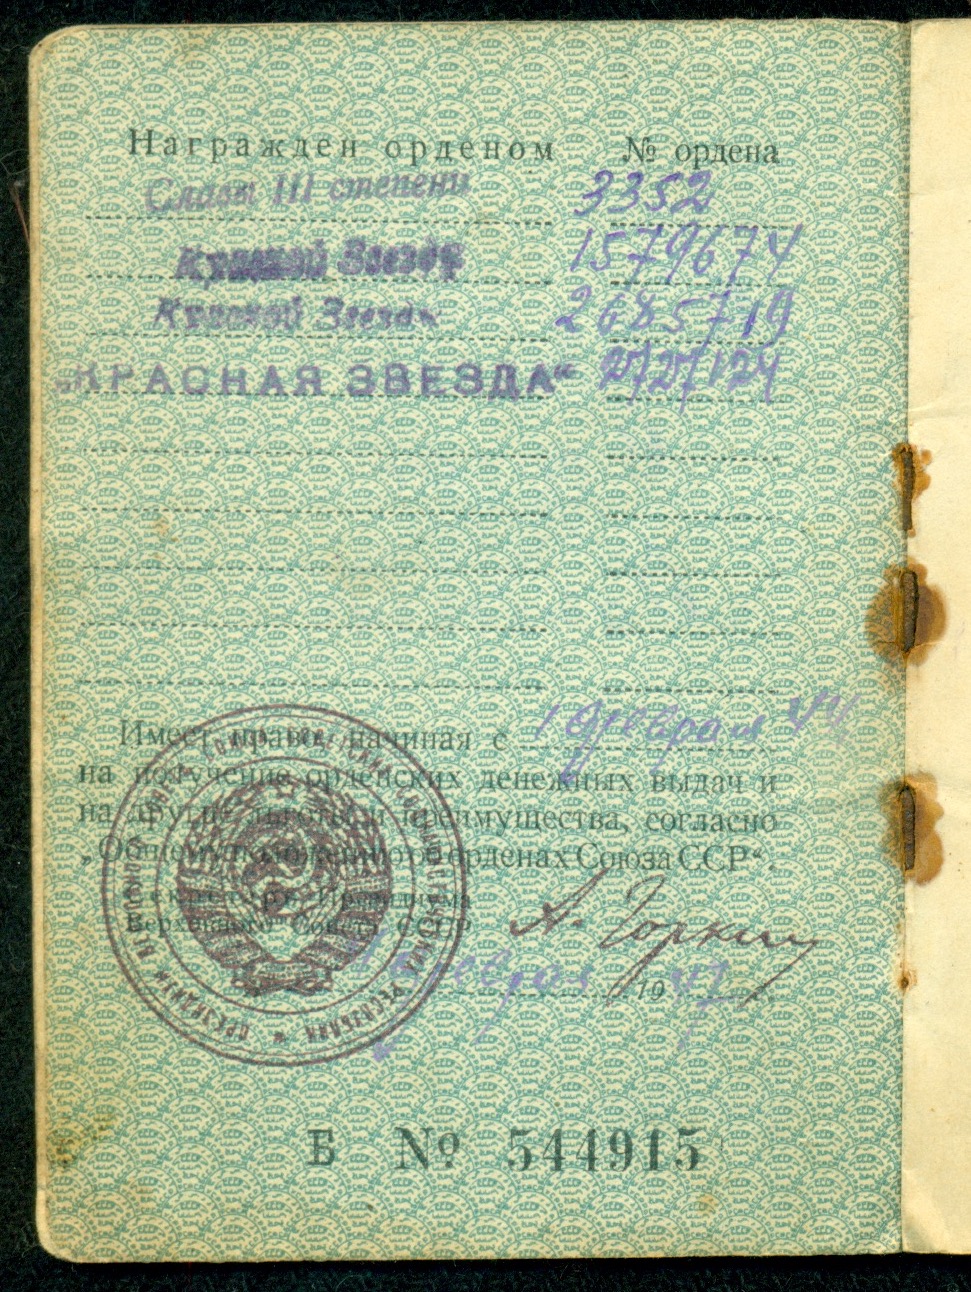 Награжден орденом № ордена
Славы III степени 3352
Красной Звезды 1579674
Красной Звезды 2685719
„КРАСНАЯ ЗВЕЗДА“ 2727124
Имеет право, начиная с 1 февраля 44
на получение орденских денежных выдач и
на другие льготы и преимущества, согласно
„Общему положению о орденах Союза ССР“.
Секретарь Президиума
Верховного Совета СССР А. Горкин
февраля 1947
Б № 544915